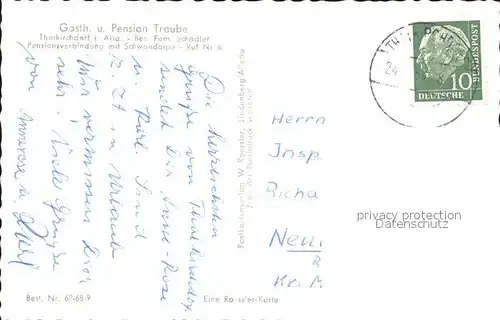 Gasth. u. Pension Traube
Thalkirchdorf i. Allg. - Bes. Fam. Schädler
Pensionsverbindung mit Schwandalpe - Ruf Nr 6
Die herzlichsten
Grüße von Thalkirchdorf
sendet Dir Anne-Rose
u. Karl. Sind
z. Zt in Urlaub
Wir vermissen Dich
sehr. Viele Grüße
von Annerose u. Karl
Postkartenverlag W. Roessler, Lindenberg/Allgäu
10
DEUTSCHE
BUNDESPOST
24
Herrn
Insp
Richa
Neu
Kr. M
privacy protection
Datenschutz
Best. Nr. 60-68-9
Eine Roessler-Karte